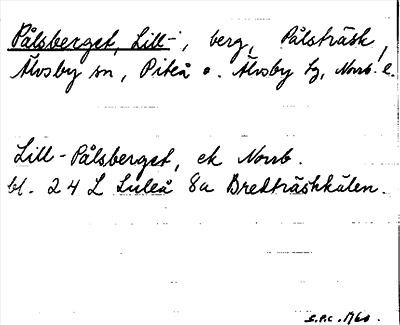 Pålsberget, Lill-, berg, Pålsträsk,
Älvsby sn, Piteå o. Älvsby tg, Norrb. l.
Lill-Pålsberget, ek Norrb.
bl. 24 L Luleå 8a Bredträskhålen.
S.P.C. 1960.